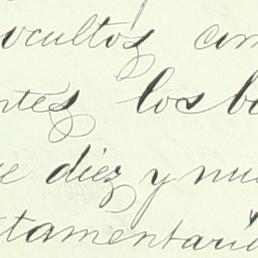 ocultos
ntes los b
e diez y nu
tamentari